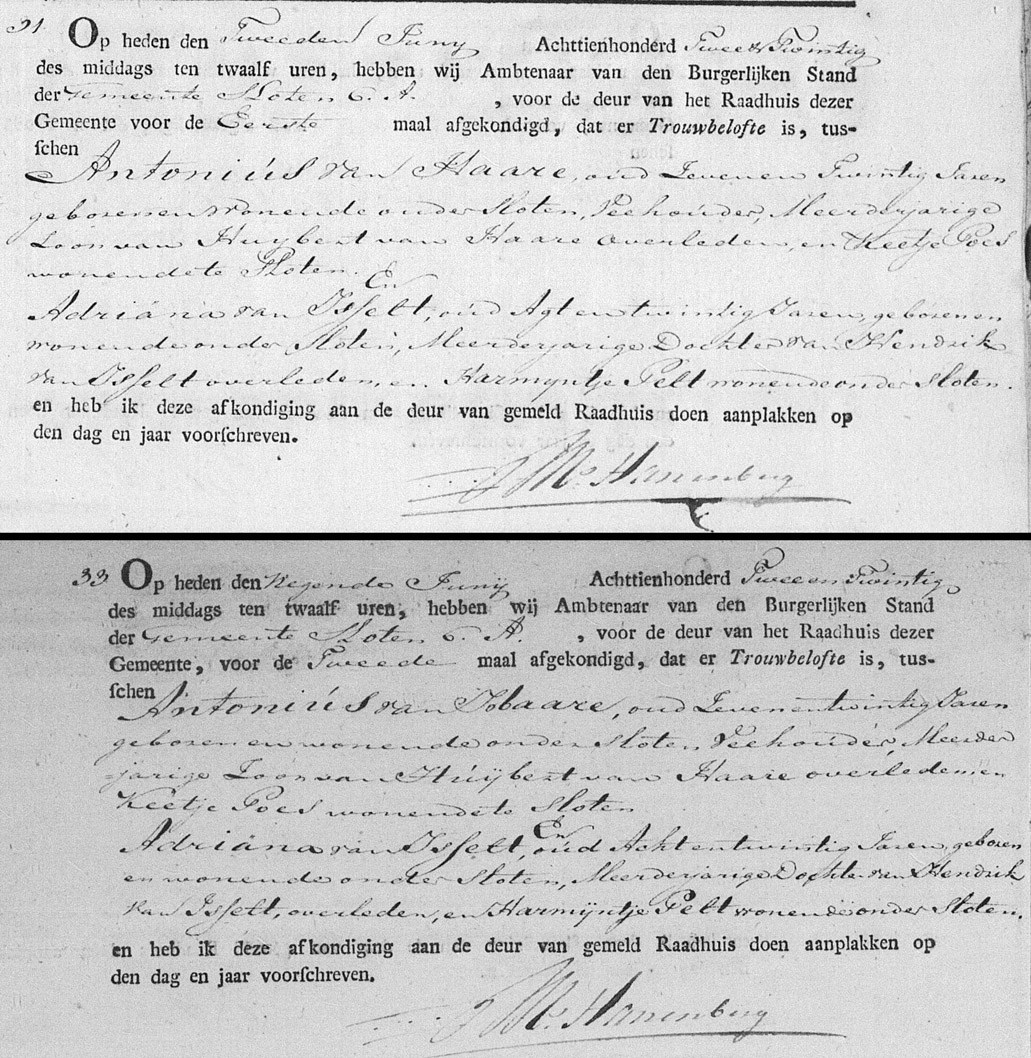 31 Op heden den Tweeden Juny Achttienhonderd Twee & Twintig
des middags ten twaalf uren, hebben wij Ambtenaar van den Burgerlijken Stand
der Gemeente Sloten C. A. , voor de deur van het Raadhuis dezer
Gemeente voor de Eerste maal afgekondigd, dat er Trouwbelofte is, tus-
ſchen
Antoniús van Haare, oud Zeven en Twintig Jaren
geboren en wonende onder Sloten, Veehouder, Meerderjarige
Zoon van Huybert van Haare overleden, en Keetje Poes
wonende te Sloten.
En
Adriána van Isselt, oud Agt en twintig Jaren, geboren en
wonende onder Sloten, Meerderjarige Dochter van Hendrik
van Isselt overleden, en Harmyntje Pelt wonende onder Sloten.
en heb ik deze afkondiging aan de deur van gemeld Raadhuis doen aanplakken op
den dag en jaar voorſchreven.
Hanenberg
33 Op heden den Negende Juny Achttienhonderd Twee en Twintig
des middags ten twaalf uren, hebben wij Ambtenaar van den Burgerlijken Stand
der Gemeente Sloten C. A. , voor de deur van het Raadhuis dezer
Gemeente, voor de Tweede maal afgekondigd, dat er Trouwbelofte is, tus-
ſchen
Antoniús van Haare, oud Zeven en twintig Jaren
geboren en wonende onder Sloten, Veehouder, Meerder
-jarige Zoon van Húijbert van Haare overleden en
Keetje Poes wonende te Sloten
En
Adriäna van Isselt, oud Acht en twintig Jaren, geboren
en wonende onder Sloten, Meerderjarige Dochter van Hendrik
van Isselt, overleden, en Harmijntje Pelt wonende onder Sloten.
en heb ik deze afkondiging aan de deur van gemeld Raadhuis doen aanplakken op
den dag en jaar voorſchreven.
Hanenberg